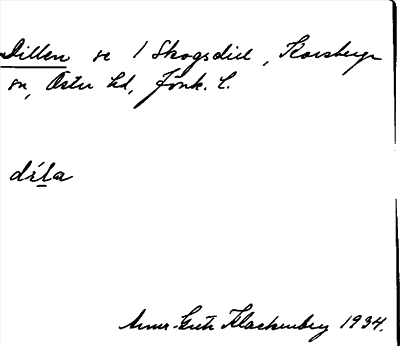 Dillen se 1 Skogsdiel, Korsberga
sn, Östra hd, Jönk. l.
díla
Anna-Greta Klackenberg 1934.